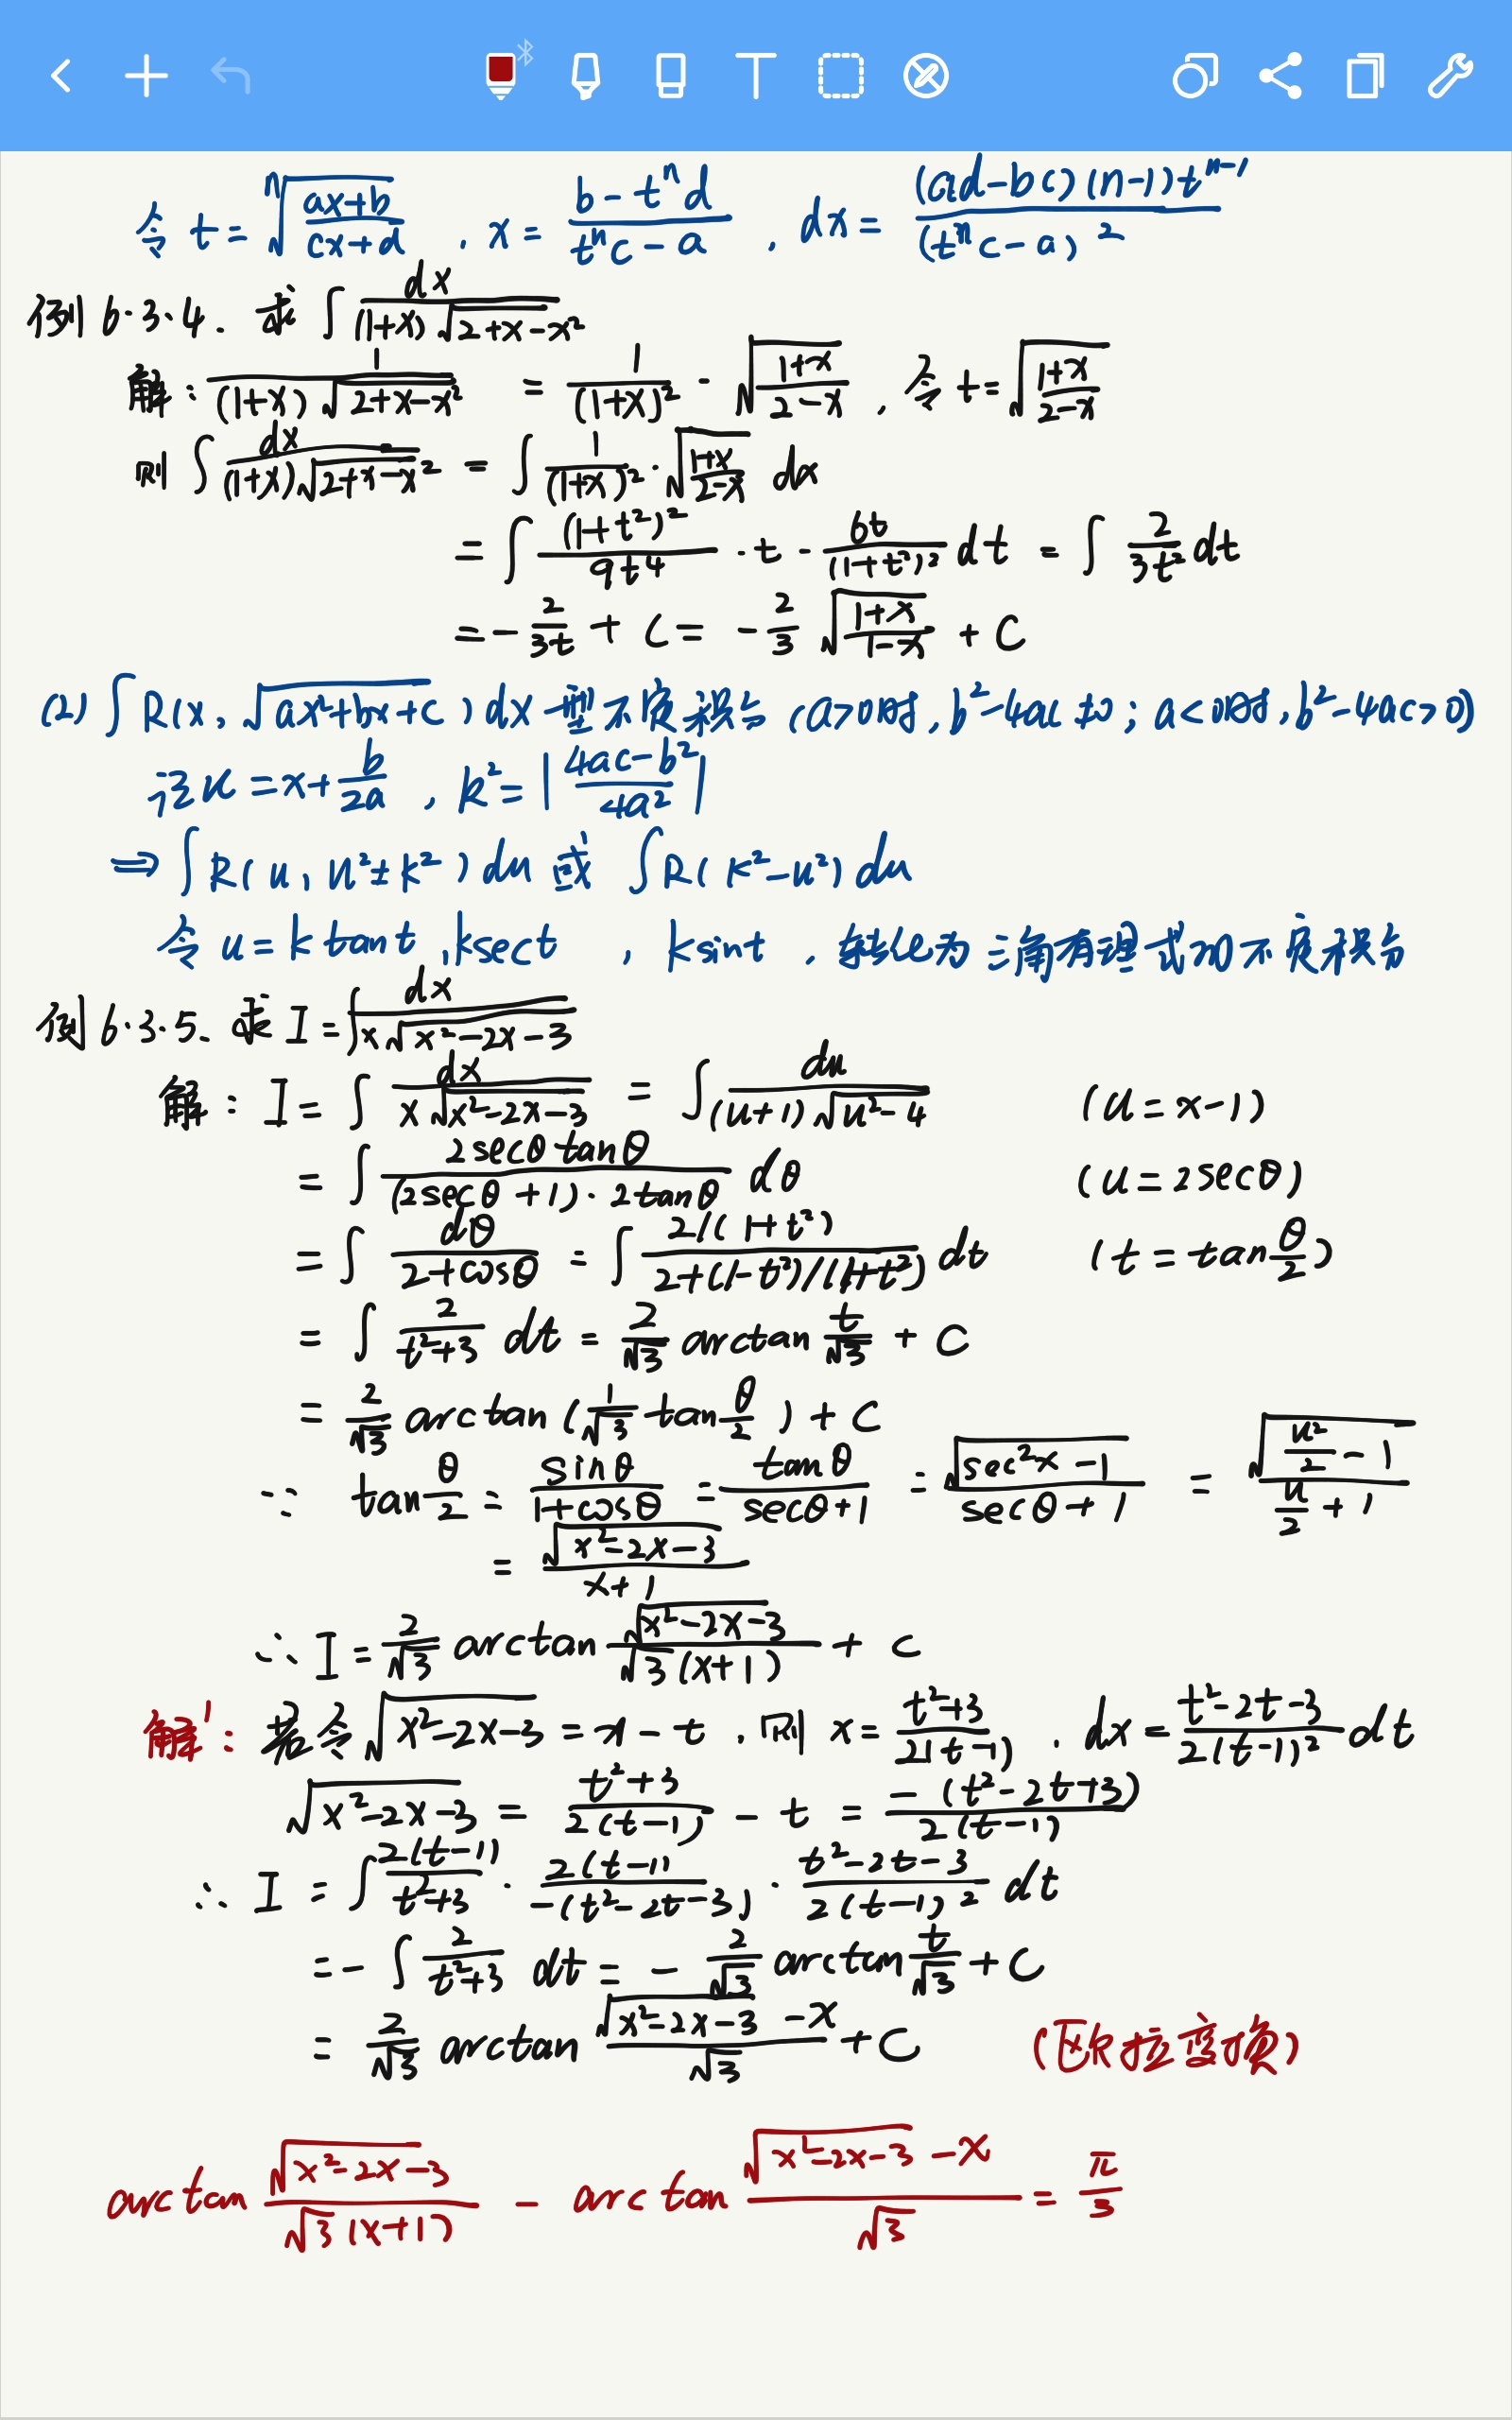 令 t = \sqrt[n]{\frac{ax+b}{cx+d}} , x = \frac{b-t^n d}{t^n c-a} , dx = \frac{(ad-bc)(n-1)t^{n-1}}{(t^n c-a)^2}
例 6·3·4. 求 ∫\frac{dx}{(1+x)\sqrt{2+x-x^2}}
解: \frac{1}{(1+x)\sqrt{2+x-x^2}} = \frac{1}{(1+x)^2} · \sqrt{\frac{1+x}{2-x}} , 令 t = \sqrt{\frac{1+x}{2-x}}
则 ∫\frac{dx}{(1+x)\sqrt{2+x-x^2}} = ∫\frac{1}{(1+x)^2} · \sqrt{\frac{1+x}{2-x}} dx
= ∫\frac{(1+t^2)^2}{9t^4} · t · \frac{6t}{(1+t^2)^2} dt = ∫\frac{2}{3t^2} dt
= -\frac{2}{3t} + C = -\frac{2}{3}\sqrt{\frac{1+x}{1-x}} + C
(2) ∫R(x, \sqrt{ax^2+bx+c}) dx 型不定积分 (a>0时, b^2-4ac≠0; a<0时, b^2-4ac>0)
记 u = x+\frac{b}{2a} , k^2 = |\frac{4ac-b^2}{4a^2}|
⇒ ∫R(u, u^2±k^2) du 或 ∫R(k^2-u^2) du
令 u = k tan t, k sec t , k sin t , 转化为三角有理式的不定积分
例 6·3·5. 求 I = ∫\frac{dx}{x\sqrt{x^2-2x-3}}
解: I = ∫\frac{dx}{x\sqrt{x^2-2x-3}} = ∫\frac{du}{(u+1)\sqrt{u^2-4}} (u = x-1)
= ∫\frac{2secθ tanθ}{(2secθ+1)·2tanθ} dθ (u = 2secθ)
= ∫\frac{dθ}{2+cosθ} = ∫\frac{2/(1+t^2)}{2+(1-t^2)/(1+t^2)} dt (t = tan\frac{θ}{2})
= ∫\frac{2}{t^2+3} dt = \frac{2}{\sqrt{3}} arctan\frac{t}{\sqrt{3}} + C
= \frac{2}{\sqrt{3}} arctan(\frac{1}{\sqrt{3}} tan\frac{θ}{2}) + C
∵ tan\frac{θ}{2} = \frac{sinθ}{1+cosθ} = \frac{tanθ}{secθ+1} = \frac{\sqrt{sec^2x-1}}{secθ+1} = \frac{\sqrt{\frac{u^2}{2}-1}}{\frac{u}{2}+1}
= \frac{\sqrt{x^2-2x-3}}{x+1}
∴ I = \frac{2}{\sqrt{3}} arctan\frac{\sqrt{x^2-2x-3}}{\sqrt{3}(x+1)} + C
解': 若令 \sqrt{x^2-2x-3} = x-t , 则 x = \frac{t^2+3}{2(t-1)} , dx = \frac{t^2-2t-3}{2(t-1)^2} dt
\sqrt{x^2-2x-3} = \frac{t^2+3}{2(t-1)} - t = \frac{-(t^2-2t+3)}{2(t-1)}
∴ I = ∫\frac{2(t-1)}{t^2+3} · \frac{2(t-1)}{-(t^2-2t-3)} · \frac{t^2-2t-3}{2(t-1)^2} dt
= -∫\frac{2}{t^2+3} dt = -\frac{2}{\sqrt{3}} arctan\frac{t}{\sqrt{3}} + C
= \frac{2}{\sqrt{3}} arctan\frac{\sqrt{x^2-2x-3}-x}{\sqrt{3}} + C (欧拉变换)
arctan\frac{\sqrt{x^2-2x-3}}{\sqrt{3}(x+1)} - arctan\frac{\sqrt{x^2-2x-3}-x}{\sqrt{3}} = \frac{π}{3}